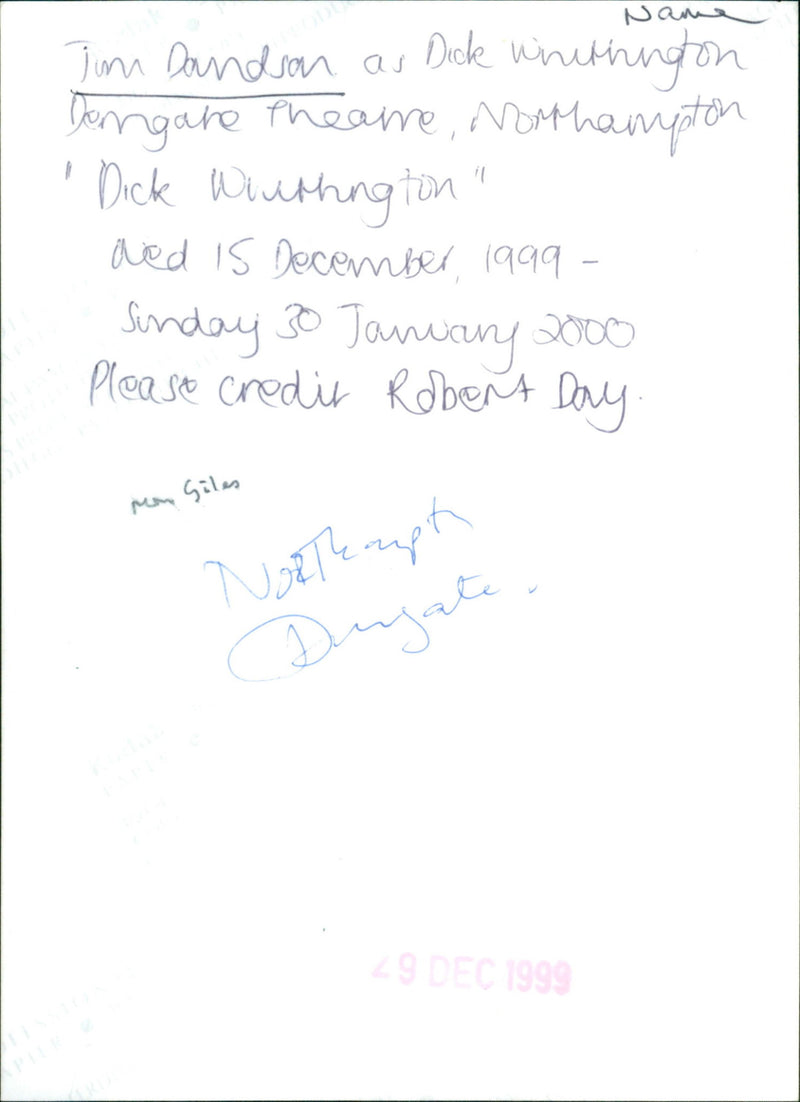 Name
Jim Davidson as Dick Whittington
Derngate Theatre, Northampton
"Dick Whittington"
Wed 15 December, 1999 -
Sunday 30 January 2000
Please credit Robert Day.
Giles
Northampton
Derngate.
29 DEC 1999